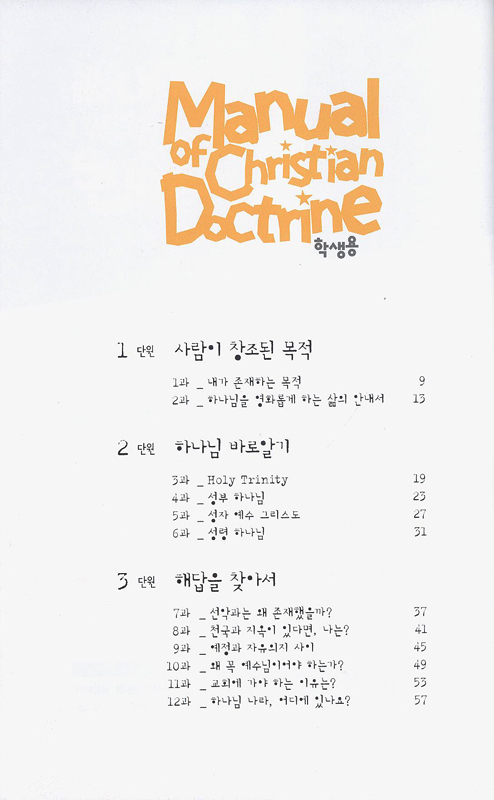 Manual
of Christian
Doctrine
학생용
1 단원 사람이 창조된 목적
1과 _ 내가 존재하는 목적 9
2과 _ 하나님을 영화롭게 하는 삶의 안내서 13
2 단원 하나님 바로알기
3과 _ Holy Trinity 19
4과 _ 성부 하나님 23
5과 _ 성자 예수 그리스도 27
6과 _ 성령 하나님 31
3 단원 해답을 찾아서
7과 _ 선악과는 왜 존재했을까? 37
8과 _ 천국과 지옥이 있다면, 나는? 41
9과 _ 예정과 자유의지 사이 45
10과 _ 왜 꼭 예수님이어야 하는가? 49
11과 _ 교회에 가야 하는 이유는? 53
12과 _ 하나님 나라, 어디에 있나요? 57